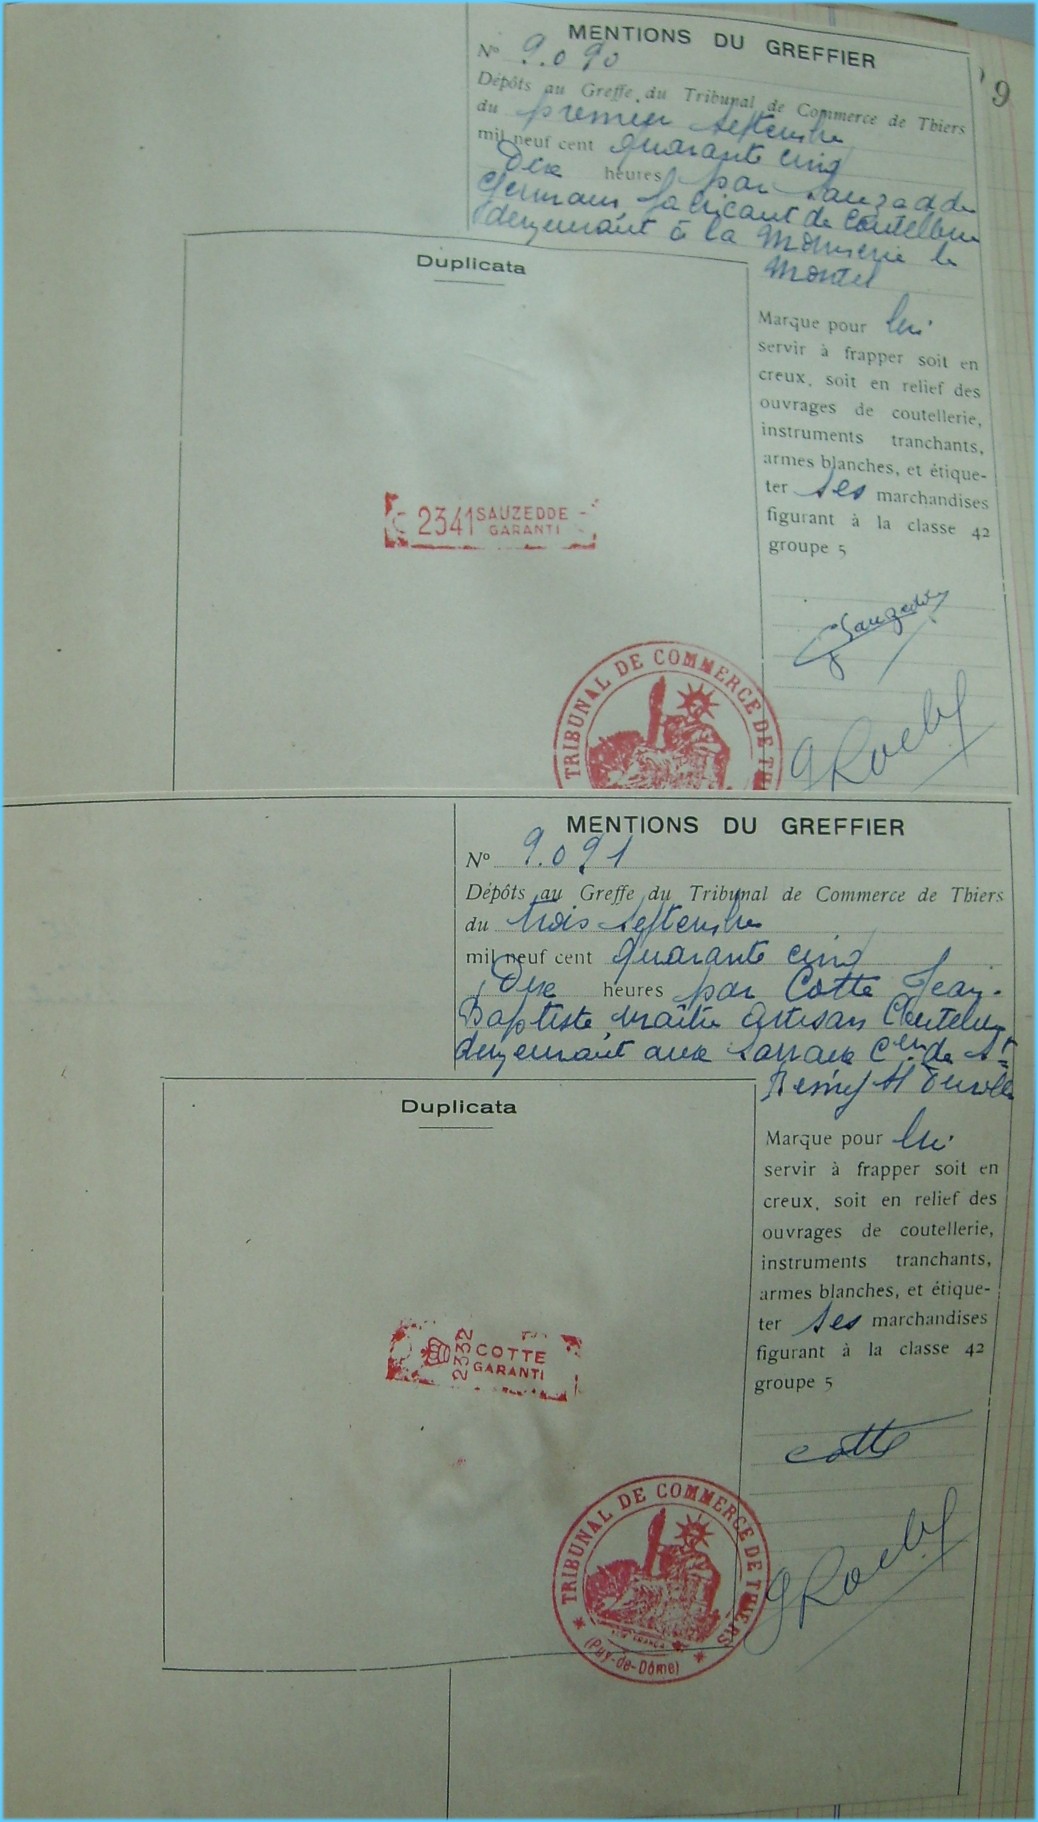 MENTIONS DU GREFFIER
9
N° 9.090
Dépôts au Greffe du Tribunal de Commerce de Thiers
du premier septembre
mil neuf cent quarante cinq
Dix heures par Sauzedde
Germain fabricant de Coutellerie
demeurant à la Monnerie le
Montel
Duplicata
Marque pour lui
servir à frapper soit en
creux, soit en relief des
ouvrages de coutellerie,
instruments tranchants,
armes blanches, et étique-
ter ses marchandises
figurant à la classe 42
groupe 5
2341 SAUZEDDE
GARANTI
Sauzedde
TRIBUNAL DE COMMERCE DE THI
MENTIONS DU GREFFIER
N° 9.091
Dépôts au Greffe du Tribunal de Commerce de Thiers
du trois septembre
mil neuf cent quarante cinq
Dix heures par Cotte Jean-
Baptiste maître artisan Coutelier
demeurant aux Sarraix Cne de St
Rémy s/ Durolle
Duplicata
Marque pour lui
servir à frapper soit en
creux, soit en relief des
ouvrages de coutellerie,
instruments tranchants,
armes blanches, et étique-
ter ses marchandises
figurant à la classe 42
groupe 5
2332 COTTE
GARANTI
Cotte
TRIBUNAL DE COMMERCE DE THIERS
(Puy-de-Dôme)